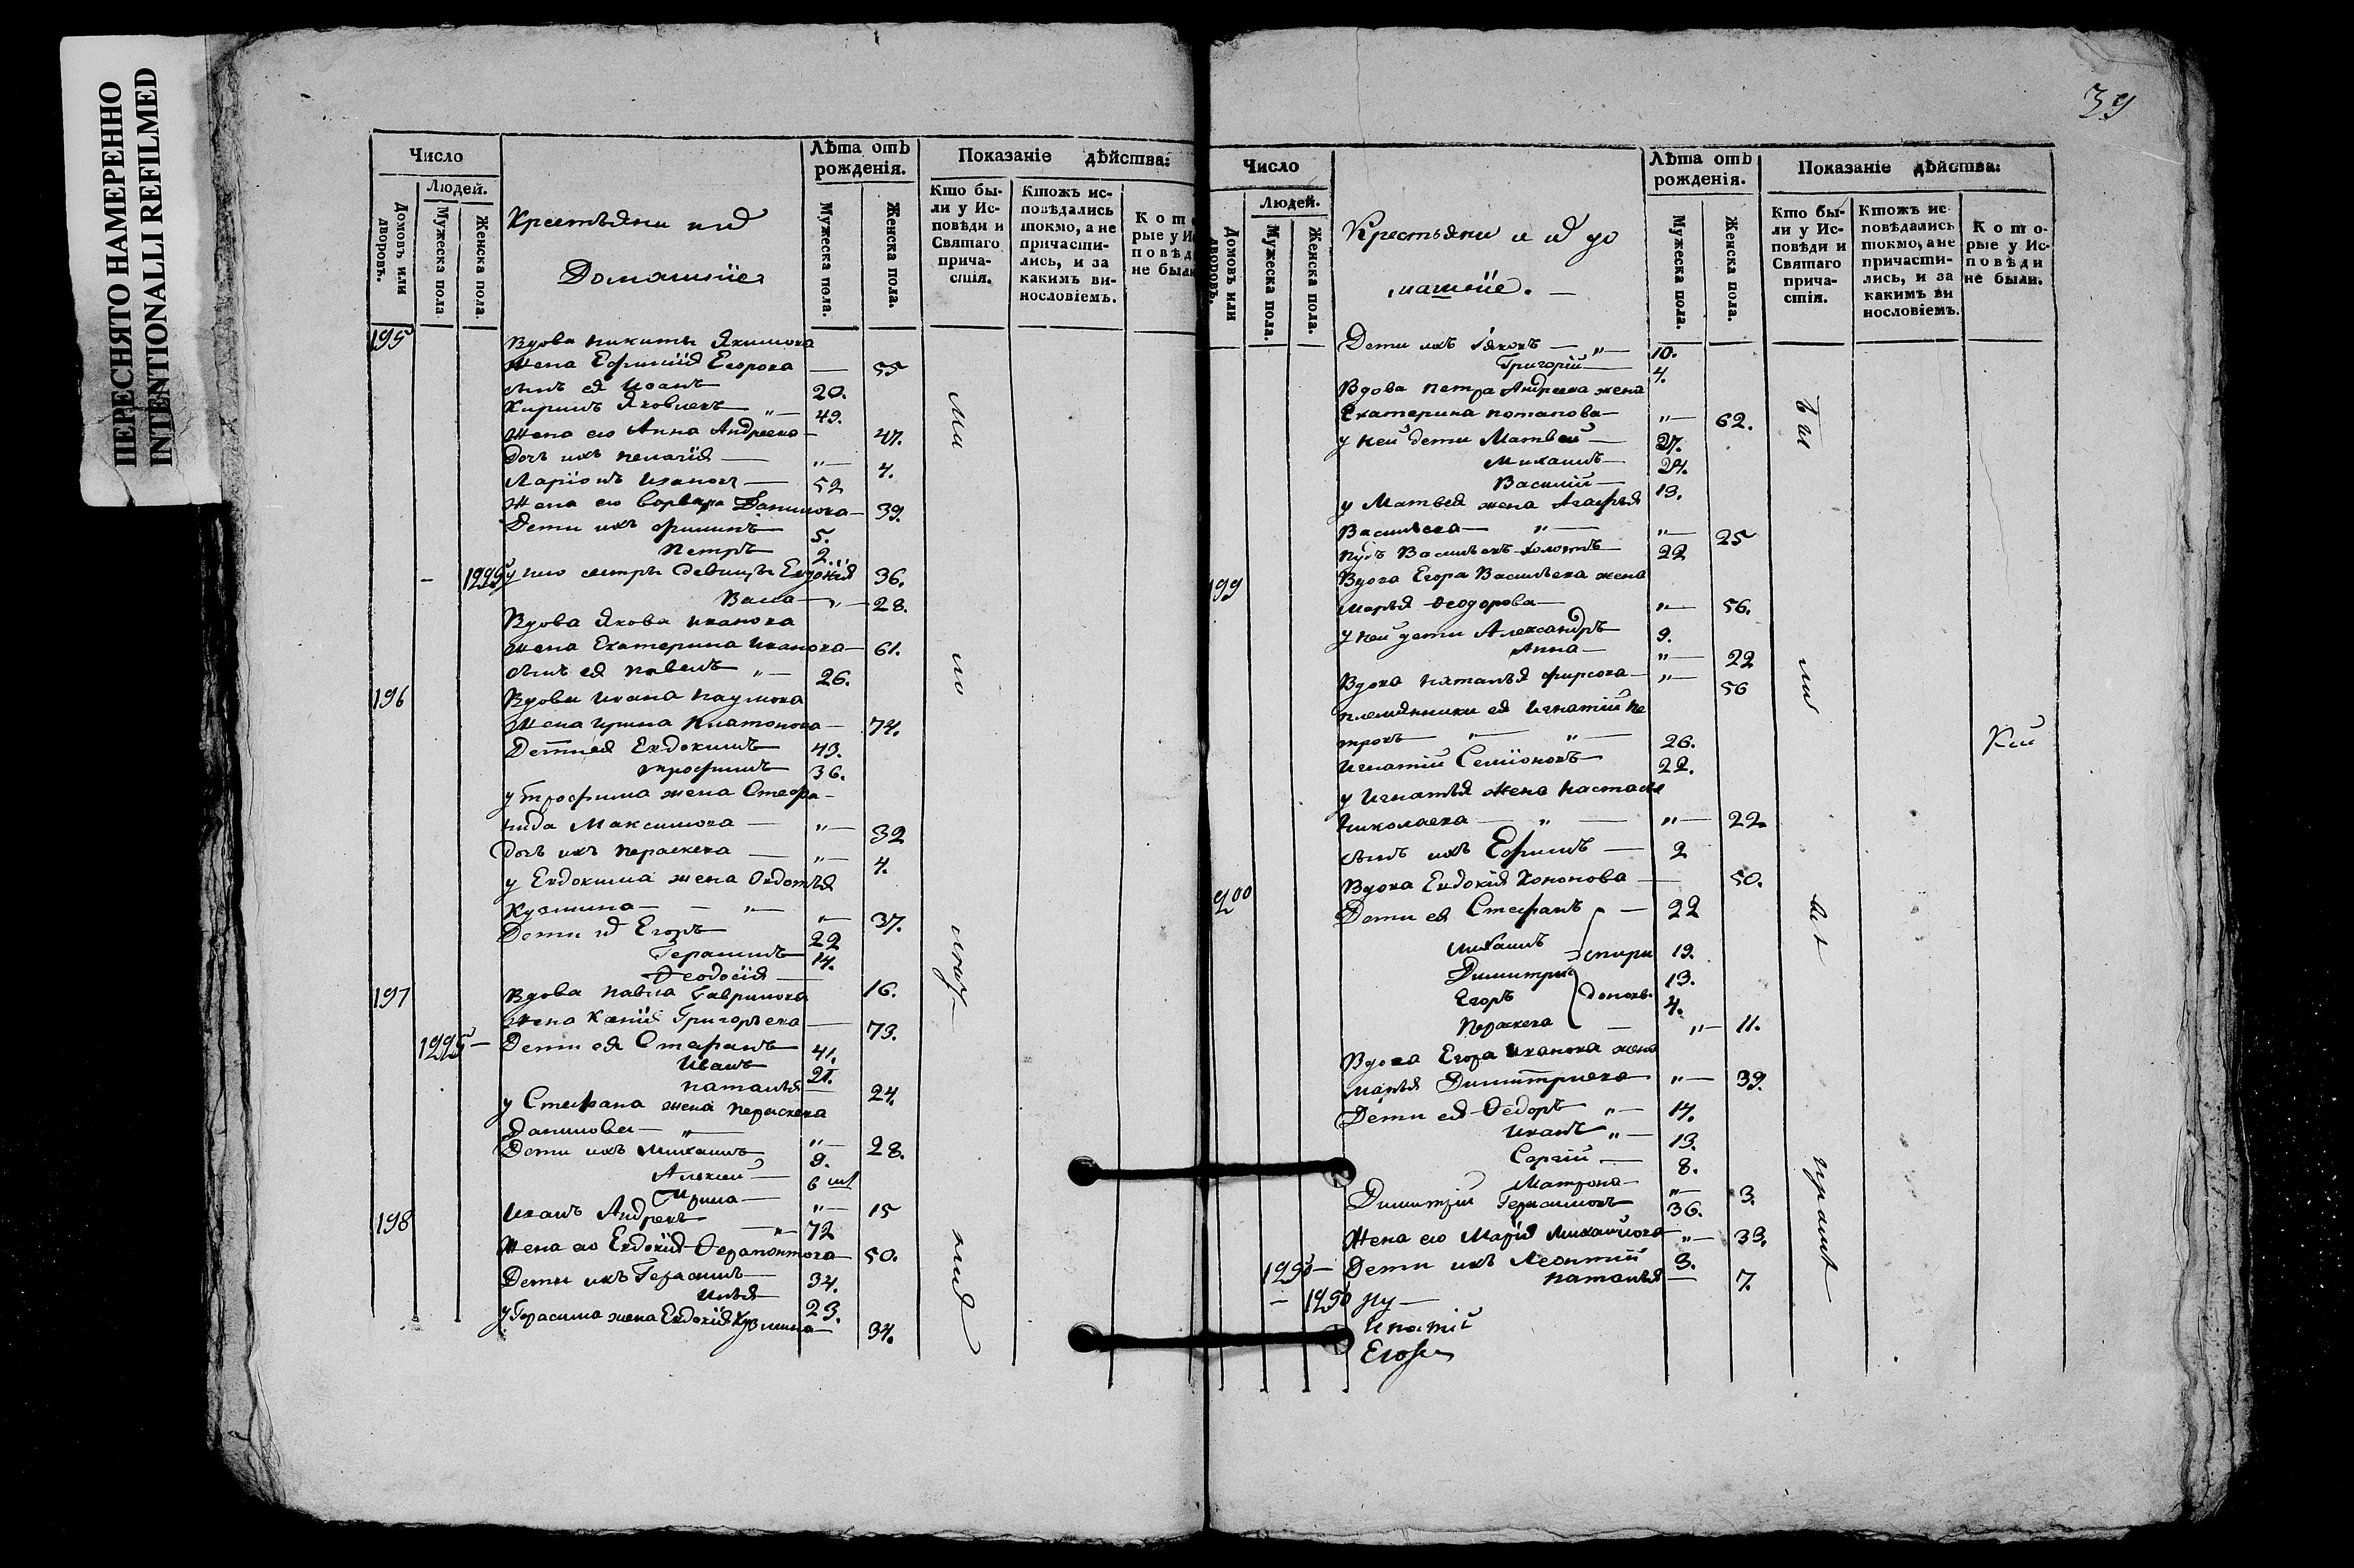 ПЕРЕСНЯТО НАМЕРЕННО
INTENTIONALLI REFILMED
39
Число
Людей.
Домовъ или дворовъ.
Мужеска пола.
Женска пола.
Крестьяни и ид
Домашніе
Лѣта отъ рожденія.
Мужеска пола.
Женска пола.
Показаніе дѣйства:
Кто бы-
ли у Ис-
повѣди и
Святаго
прича-
стія.
Ктожъ ис-
повѣдались
токмо, а не
причасти-
лись, и за
какимъ ви-
нословіемъ.
Кот
рые у И
повѣд
не был
195
Вдова никиты Якимова
жена Ефимія Егорова — 55
сынъ ея Иоанъ 20.
Кирилъ Яковлевъ „— 49.
жена его Анна Андреева — 47.
дочь ихъ пелагія — „— 4.
Ларіонъ Ивановъ — 52
жена его Варвара Данилова — 39.
Дети ихъ филипъ 5.
петръ 2.
1225 у него сестры девицы Евдокія 36.
Васа — „— 28.
Вдова Якова иванова
жена Екатерина иванова — 61.
сынъ ея павелъ „— 26.
196
Вдова ивана наумова
жена ирина платонова — 74.
Дети ея Евдокимъ 43.
трофимъ 36.
у трофима жена Стефа-
нида Максимова — „— 32
Дочь ихъ параскева — „— 4.
у Евдокима жена Овдотья
Кузмина — — „— „— 37.
Дети ея Егоръ 22
Герасимъ 14.
Феодосія — 16.
197
Вдова павла Гаврилова
жена Ксенія Григорьева — 73.
1225 — Дети ея Стефанъ 41.
Иванъ 21.
наталья — 24.
у Стефана жена параскева
Данилова — „— „— 28.
Дети ихъ михаилъ 9.
Алексей — 6
Ирина — „— 15
198
Иванъ Андревъ — „— 72
жена его Евдокія Ферапонтова — 50.
Дети ихъ Герасимъ — 34.
илья 23.
у Герасима жена Евдокія Кузмина — 34.
Число
Людей.
Домовъ или дворовъ.
Мужеска пола.
Женска пола.
Крестьяни и ид до
машніе. —
Лѣта отъ рожденія.
Мужеска пола.
Женска пола.
Показаніе дѣйства:
Кто бы-
ли у Ис-
повѣди и
Святаго
прича-
стія.
Ктожъ ис
повѣдались
токмо, а не
причасти-
лись, и за
какимъ ви
нословіемъ.
Кото-
рые у Ис-
повѣди
не были.
Дети ихъ Іяковъ — „— 10.
Григорій — 4.
Вдова петра Андреева жена
Екатерина потапова — „— 62.
у ней дети Матвей — 27.
Михаилъ — 24.
Василій — 13.
у Матвея жена Агафья
Васильева — „— „— 25
Вдова Егора Васильева жена 22
199
марья Феодорова — „— 56.
у ней дети Александръ 9.
Анна — „— 22
Вдова наталья фирсова — „— 56
племянники ея Игнатій пе
тровъ — „— 26.
Игнатій Семіоновъ 22.
у Игнатья жена настасья
николаева — „— „— 22.
сынъ ихъ Ефимъ — 2
200
Вдова Евдокія Кононова — 50.
Дети ея Стефанъ — 22
михаилъ 19.
Димитрій 13.
Егоръ 4.
параскева — „— 11.
Вдова Егора иванова жена
марья Димитриева „— 39.
Дети ея Федоръ „— 14.
иванъ „— 13.
Сергій — 8.
Матрона — „— 3.
Димитрій Герасимовъ 36.
жена его Марія михайлова „— 33.
1250 — Дети ихъ Леонтій 3.
наталья — 7.
— 1250